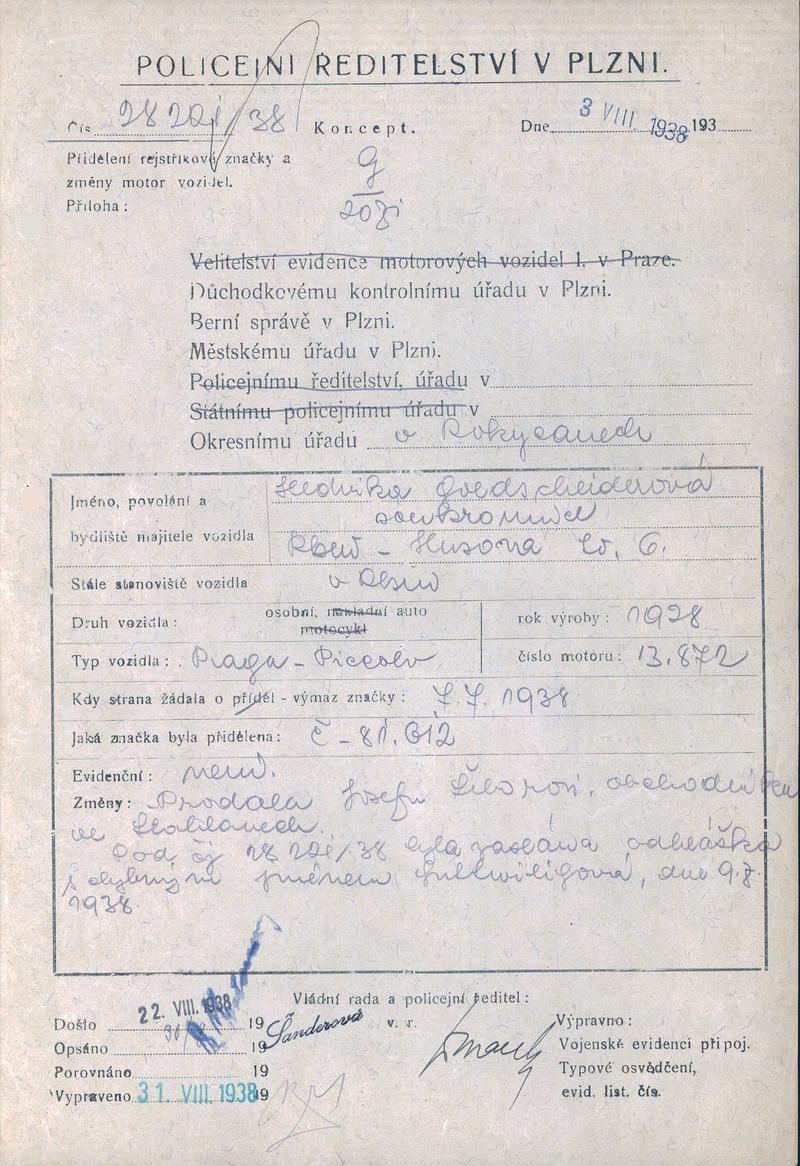 POLICEJNÍ ŘEDITELSTVÍ V PLZNI.
Čís. /38 Koncept. Dne 3 VIII 1938 193
Přidělení rejstříkové značky a
změny motor vozidel.
Příloha:
Velitelství evidence motorových vozidel 1. v Praze.
Důchodkovému kontrolnímu úřadu v Plzni.
Berní správě v Plzni.
Městskému úřadu v Plzni.
Policejnímu ředitelství, úřadu v
Státnímu policejnímu úřadu v
Okresnímu úřadu v Rokycanech
Jméno, povolání a
bydliště majitele vozidla
Hedvika Goldscheiderová
soukromnice
Plzeň - Husova 6.
Stálé stanoviště vozidla v Plzni
Druh vozidla: osobní, nákladní auto
motocykl
rok výroby: 1928
Typ vozidla: Praga - Piccolo číslo motoru: 13.872
Kdy strana žádala o příděl - výmaz značky: 7.7. 1938
Jaká značka byla přidělena: Č - 81.612
Evidenční: není.
Změny: Prodala Josefu obchodníku
ve
Pod čj /38 byla zaslána odhláška
s chybným jménem dne 9.7.
1938.
Vládní rada a policejní ředitel:
Došlo 22. VIII. 1938 19 Šanderová v. r. Výpravno:
Opsáno 19 Vojenské evidenci připoj.
Porovnáno 19 Typové osvědčení,
Vypraveno 31. VIII. 1938 19 evid. list. čís.